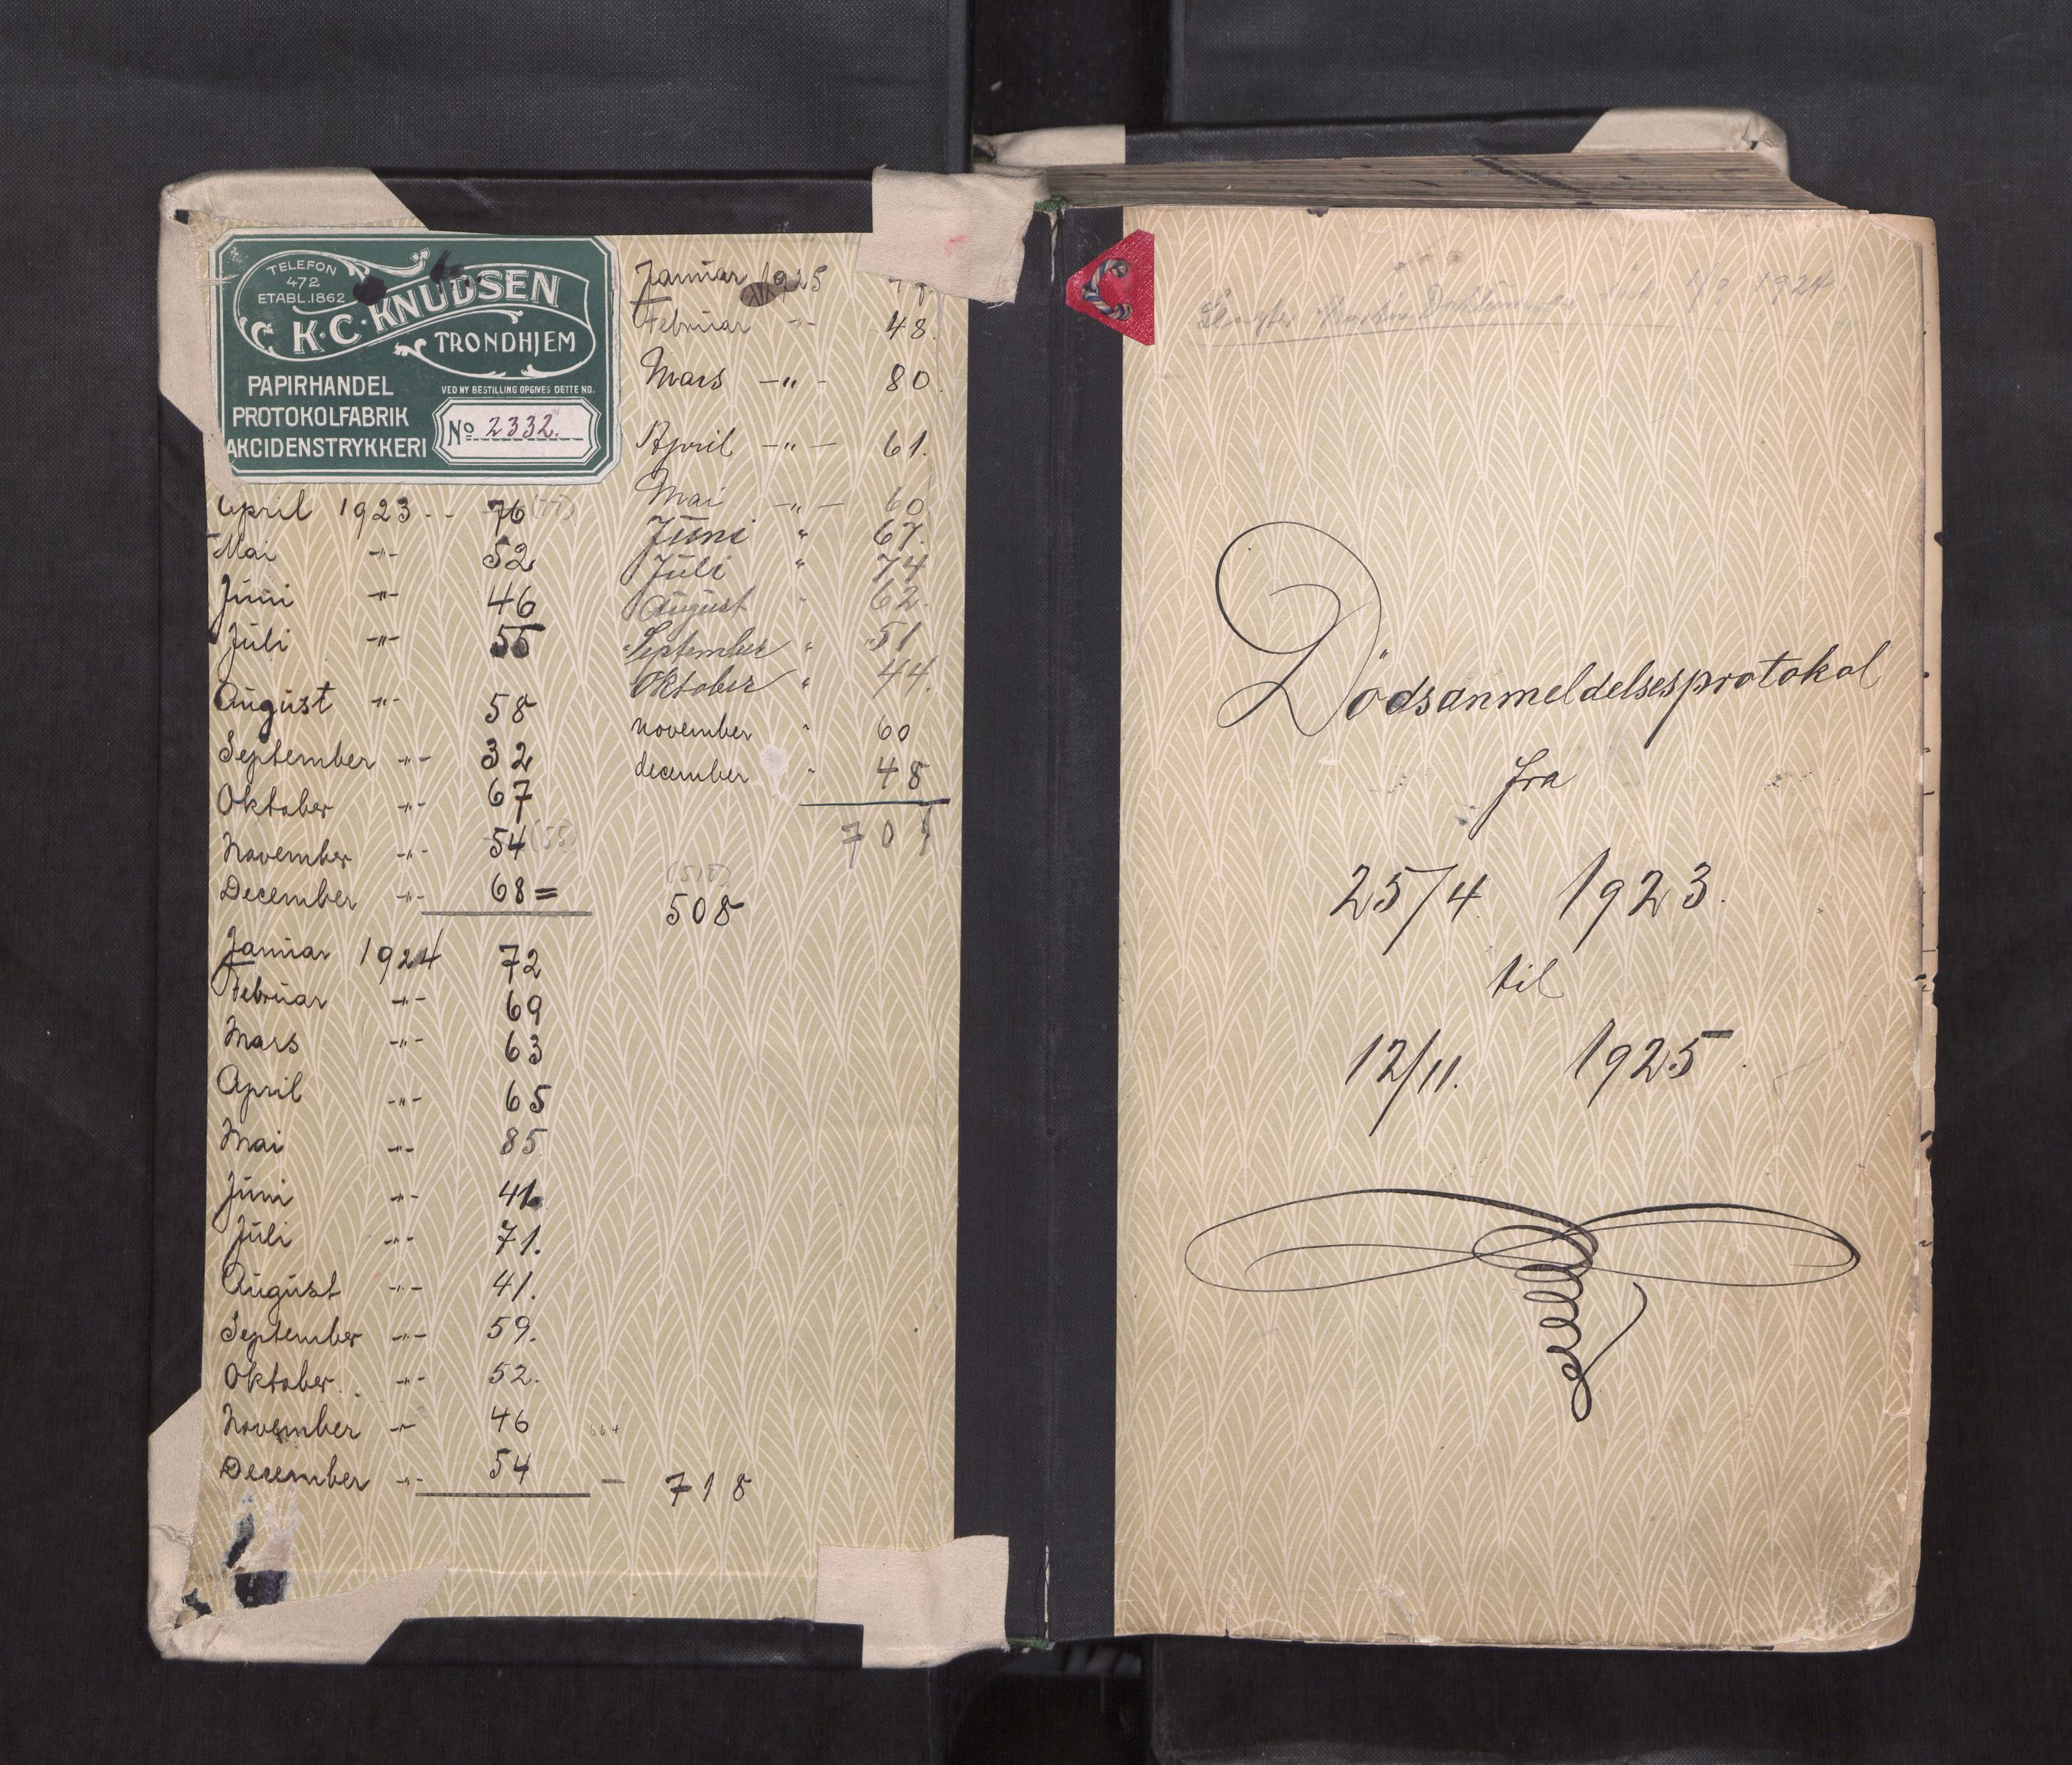 TELEFON
472
ETABL. 1862
C. K. C. KNUDSEN
TRONDHJEM
PAPIRHANDEL
PROTOKOLFABRIK
AKCIDENSTRYKKERI
VED NY BESTILLING OPGIVES DETTE NO.
No 2332.
April 1923 - - 76 (77)
Mai -"- 52
Juni -"- 46
Juli -"- 55
August -"- 58
September -"- 32
Oktober -"- 67
November -"- 54 (55)
December -"- 68 =
508
Januar 1924 72
Februar -"- 69
Mars -"- 63
April -"- 65
Mai -"- 85
Juni -"- 41
Juli -"- 71.
August -"- 41.
September -"- 59.
Oktober -"- 52.
November -"- 46
December -"- 54 — 718
Januar 1925
Februar -"- 48.
Mars -"- 80.
April -"- 61.
Mai -"- 60
Juni " 67.
Juli " 74
August " 62.
September " 51
Oktober " 44.
november " 60
december " 48
1924
Dödsanmeldelsesprotokol
fra
25/4 1923.
til
12/11. 1925.